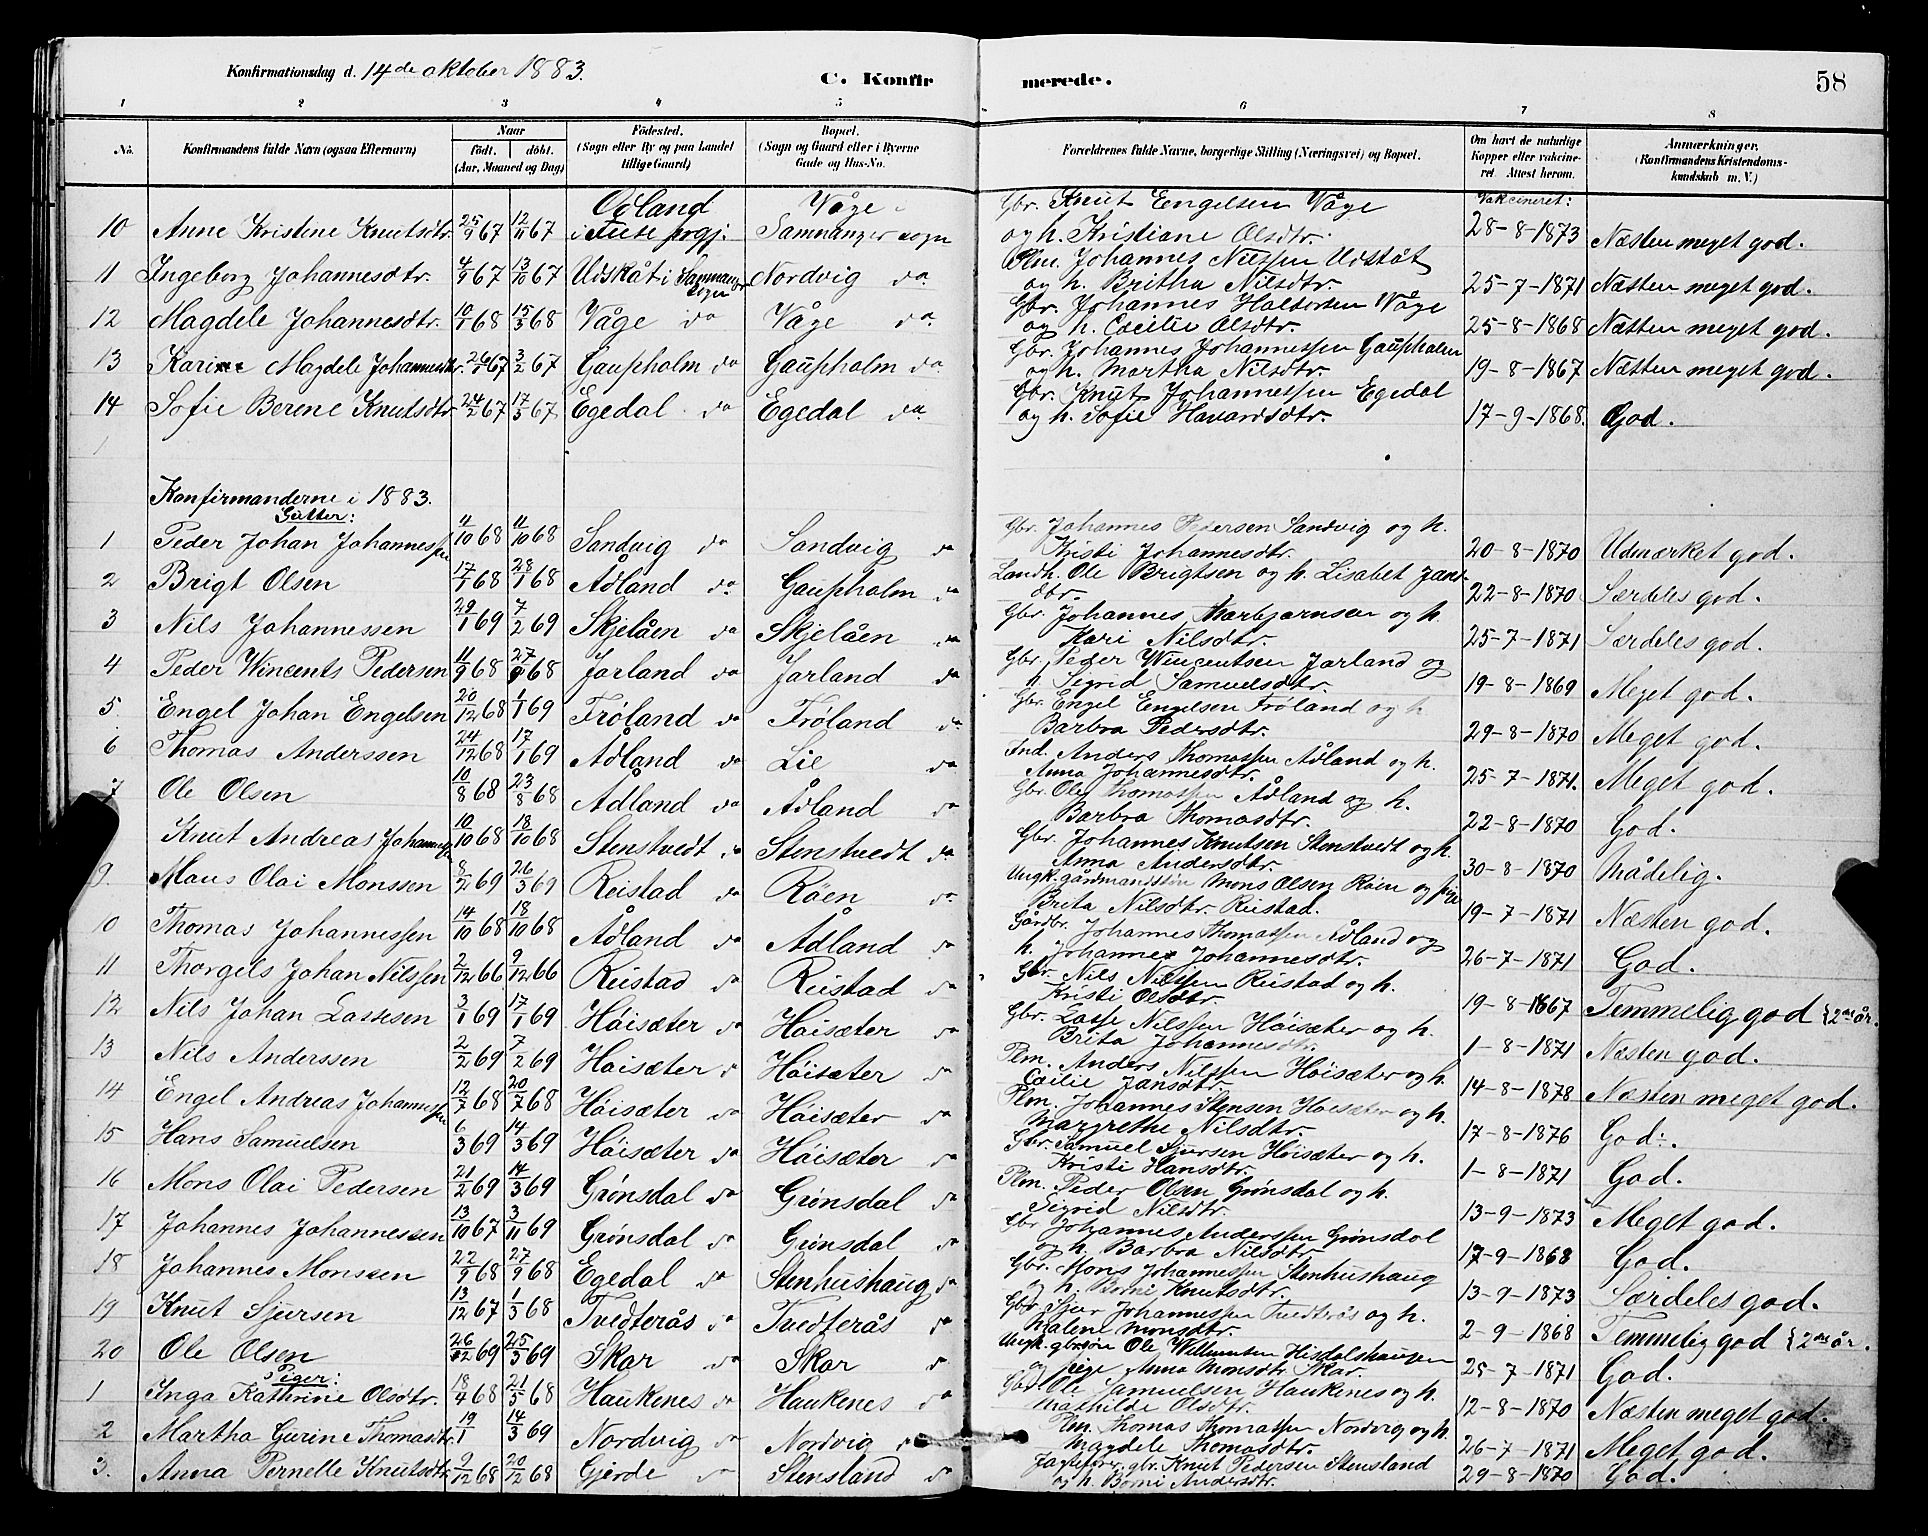 Konfirmationsdag d. 14de oktober 1883.
C. Konfir merede. 58
1 2 3 4 5 6 7 8
No. Konfirmandens fulde Navn (ogsaa Efternavn) Naar födt. döbt. (Aar, Maaned og Dag) Födested. (Sogn eller By og paa Landet tillige Gaard) Bopæl. (Sogn og Gaard eller i Byerne Gade og Hus-No. Forældrenes fulde Navne, borgerlige Stilling (Næringsvei) og Bopæl. Om havt de naturlige Kopper eller vakcineret. Attest herom. Anmærkninger. (Konfirmandens Kristendomskundskab m. V.)
Vakcineret:
10 Anne Kristine Knutsdtr. 25/9 67 12/11 67 i Fuse prgj. Våge Samnanger sogn Gbr. Knut Engelsen Våge og h. Kristiane Olsdtr. 28-8-1873 Næsten meget god.
11 Ingeborg Johannesdtr. 4/9 67 13/10 67 Udskåt i Samnanger sogn Nordvig do Plm. Johannes Nilssen Udskåt og h. Britha Nilsdtr. 25-7-1871 Næsten meget god.
12 Magdele Johannesdtr. 10/1 68 15/3 68 Våge do Våge do Gbr. Johannes Halvorsen Våge og h. Cecilie Olsdtr. 25-8-1868 Næsten meget god.
13 Karine Magdele Johannesdtr. 26/1 67 3/2 67 Gaupholm do Gaupholm do Gbr. Johannes Johannessen Gaupholm og h. Martha Nilsdtr. 19-8-1867 Næsten meget god.
14 Sofie Berene Knutsdtr 24/2 67 17/3 67 Egedal do Egedal do Gbr. Knut Johannessen Egedal og h. Sofie Havardsdtr. 17-9-1868. God.
Konfirmanderne i 1883.
Gutter:
1 Peder Johan Johannessen 4/10 68 11/10 68 Sandvig do Sandvig do Gbr. Johannes Pedersen Sandvig og h. Kristi Johannesdtr. 20-8-1870 Udmærket god.
2 Brigt Olsen 17/1 68 28/1 68 Ådland do Gaupholm do Landh. Ole Brigtsen og h. Lisabet Jansdtr. 22-8-1870 Særdeles god.
3 Nils Johannessen 29/1 69 7/2 69 Skjelåen do Skjelåen do Gbr. Johannes Thorbjørnsen og h. Kari Nilsdtr. 25-7-1871 Særdeles god.
4 Peder Wincents Pedersen 11/9 68 27/9 68 Jarland do Jarland do Gbr. Peder Wincentsen Jarland og h. Sigrid Samuelsdtr. 19-8-1869 Meget god.
5. Engel Johan Engelsen 20/12 68 1/1 69 Frøland do Frøland do Gbr. Engel Engelsen Frøland og h Barbra Pedersdtr. 29-8-1870 Meget god.
6 Thomas Anderssen 24/12 68 17/1 69 Ådland do Lie do Ind. Anders Thomassen Ådland og h. Anna Johannesdtr. 25-7-1871. Meget god.
7 Ole Olsen 10/8 68 23/8 68 Ådland do Ådland do Gbr. Ole Thomassen Ådland og h. Barbra Thomasdtr. 22-8-1870 God.
Knut Andreas Johannessen 10/10 68 18/10 68 Stenstvedt do Stenstvedt do Gbr. Johannes Knutsen Stenstvedt og h. Anna Andersdtr. 30-8-1870 Mådelig.
9. Mons Olai Monssen 8/2 69 26/3 69 Reistad do Röen do Ungk. gårdmandssön Mons Olsen Röen og pige Brita Nilsdtr. Reistad. 19-7-1871 Næsten god.
10 Thomas Johannessen 14/10 68 18/10 68 Ådland do Ådland do Gårdbr. Johannes Thomassen Ådland og h. Johanne Johannesdtr. 26-7-1871 God.
11 Thorgels Johan Nilssen 2/12 66 9/12 66 Reistad do Reistad do Gbr. Nils Nilssen Reistad og h. Kristi Olsdtr. 19-8-1867 Temmelig god {2det år.
12 Nils Johan Lassesen 3/1 69 17/1 69 Höisæter do Höisæter do Gbr. Lasse Nilssen Höisæter og h. Brita Johannesdtr. 1-8-1871 Næsten god.
13 Nils Anderssen 2/2 69 7/2 69 Höisæter do Höisæter do Plm. Anders Nilssen Höisæter og h. Cecilie Jansdtr. 14-8-1878 Næsten meget god.
14 Engel Andreas Johannessen 12/7 68 20/7 68 Höisæter do Höisæter do Plm. Johannes Stensen Höisæter og h. Margrethe Nilsdtr. 17-8-1876 God.
15 Hans Samuelsen 6/3 69 14/3 69 Höisæter do Höisæter do Gbr. Samuel Sjursen Höisæter og h. Kristi Hansdtr. 1-8-1871 God.
16 Mons Olai Pedersen 21/2 69 14/3 69 Grönsdal do Grönsdal do Plm. Peder Olsen Grönsdal og h. Sigrid Nilsdtr. 13-9-1873 Meget god.
17 Johannes Johannessen 13/10 67 3/11 69 Grönsdal do Grönsdal do Gbr Johannes Anderssen Grönsdal og h. Barbra Nilsdtr. 17-9-1868 God.
18 Johannes Monssen 22/9 68 27/9 68 Egedal do Stenhushaug do Gbr. Mons Johannessen Stenhushaug og h. Borni Knutsdtr. 13-9-1873 Særdeles god.
19 Knut Sjursen 13/12 67 1/3 68 Tvedterås do Tvedterås do Gbr Sjur Johannessen Tvedterås og h. Malene Monsdtr. 2-9-1868 Temmelig god {2det år.
20 Ole Olsen 26/2 69 25/3 69 Skar do Skar do Ungk. gbrsön Ole Willumsen Hisdalshaugen og pige Anna Monsdtr. Skar. 25-7-1871 God.
Piger:
1 Inga Kathrine Olsdtr. 18/4 68 21/5 68 Haukenes do Haukenes do Gbr. Ole Samuelsen Haukenes og h. Mathilde Olsdtr. 12-8-1870 Næsten meget god.
2 Martha Gurine Thomasdtr. 19/1 14/3 69 Nordvig do Nordvig do Plm. Thomas Thomassen Nordvig og h. Magdele Thomasdtr. 26-7-1871 Meget god.
3. Anna Pernelle Knutsdtr 9/12 68 20/12 68 Gjerde do Stensland do gbr. Knut Pedersen Stensland og h. Borni Andersdtr. 29-8-1870 God.